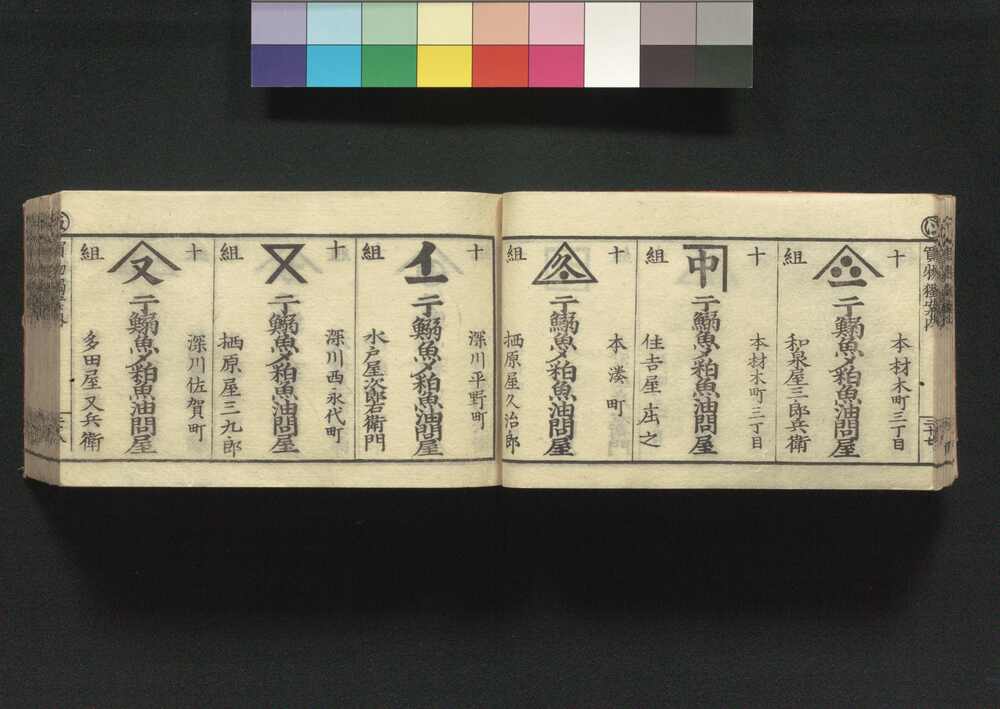 十組
本材木町三丁目
干鰯魚〆粕魚油問屋
和泉屋三郎兵衛
十組
中
本材木町三丁目
干鰯魚〆粕魚油問屋
住吉屋庄之
十組
久
本湊町
干鰯魚〆粕魚油問屋
栖原屋久治郎
十組
深川平野町
干鰯魚〆粕魚油問屋
水戸屋次郎右衛門
十組
深川西永代町
干鰯魚〆粕魚油問屋
栖原屋三九郎
十組
又
深川佐賀町
干鰯魚〆粕魚油問屋
多田屋又兵衛
買物獨案内